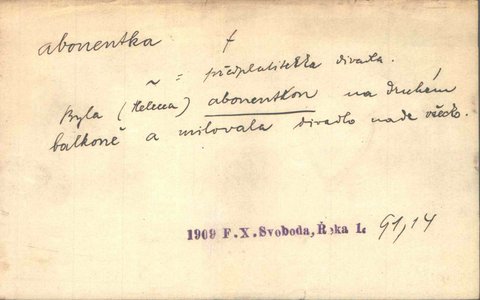 abonentka f
~ = předplatitelka divadla.
Byla (Helena) abonentkou na druhém
balkoně a milovala divadlo nade všecko.
1909 F.X.Svoboda, Řeka I. 91,14